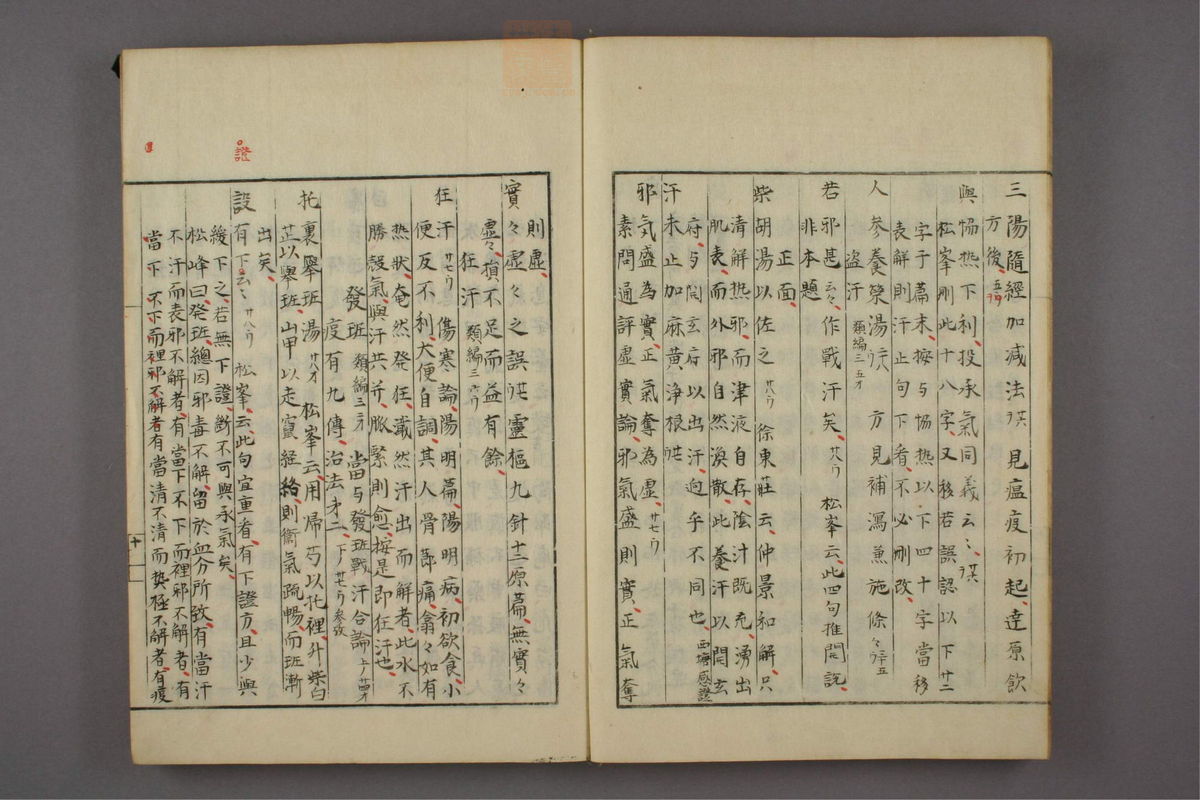 三陽隨經加減法 見瘟疫初起、達原飲
方後、
與恊热下利、投承氣同義云々、
松峯刪此十八字、又移若誤認以下廿二
字于篇末、按与恊热以下四十字當移
表解則汗止句下看、不必刪改、
人參養榮湯 方見補瀉兼施條
盜汗 類編三
若邪甚云々、作戰汗矣、廿六ウ 松峯云、此四句推開説、
非本題
正面、
柴胡湯以佐之 廿六ウ 徐東莊云、仲景和解、只
清解热邪、而津液自存、陰汁既充、湧出
肌表、而外邪自然渙散、此養汗以開玄
府、与開玄府以出汗、迥乎不同也、西塘感證
汗未止加麻黄浄根
邪気盛為實、正氣奪為虚、廿七ウ
素問通評虚實論、邪氣盛則實、正氣奪
則虚、
實々虚々之誤 靈樞九針十二原篇、無實々
虚々、損不足而益有餘、
狂汗 類編三
狂汗 廿七ウ 傷寒論、陽明篇、陽明病、初欲食、小
便反不利、大便自調、其人骨節痛、翕々如有
热狀、奄然発狂、濈然汗出而解者、此水不
勝穀氣、與汗共并、脈緊則愈、按是即狂汗也、
發班 類編三 當与發班戰汗合論
疫有九傳、治法才二、 参攷
托裏舉班湯 廿八オ 松峯云、用帰芍以托裡、升柴白
芷以舉班、山甲以走竄経絡、則衛氣疏暢、而班漸
出矣、
設有下云々 廿八ウ 松峯云、此句宜重看、有下證方、且少與
緩下之、若無下證、断不可與承氣矣、
證
松峰曰、発班、總因邪毒不解、留於血分所致、有當汗
不汗、而表邪不解者、有當下不下、而裡邪不解者、有
當下、不下而裡邪不解者、有當清不清、而热極不解者、有疫
十